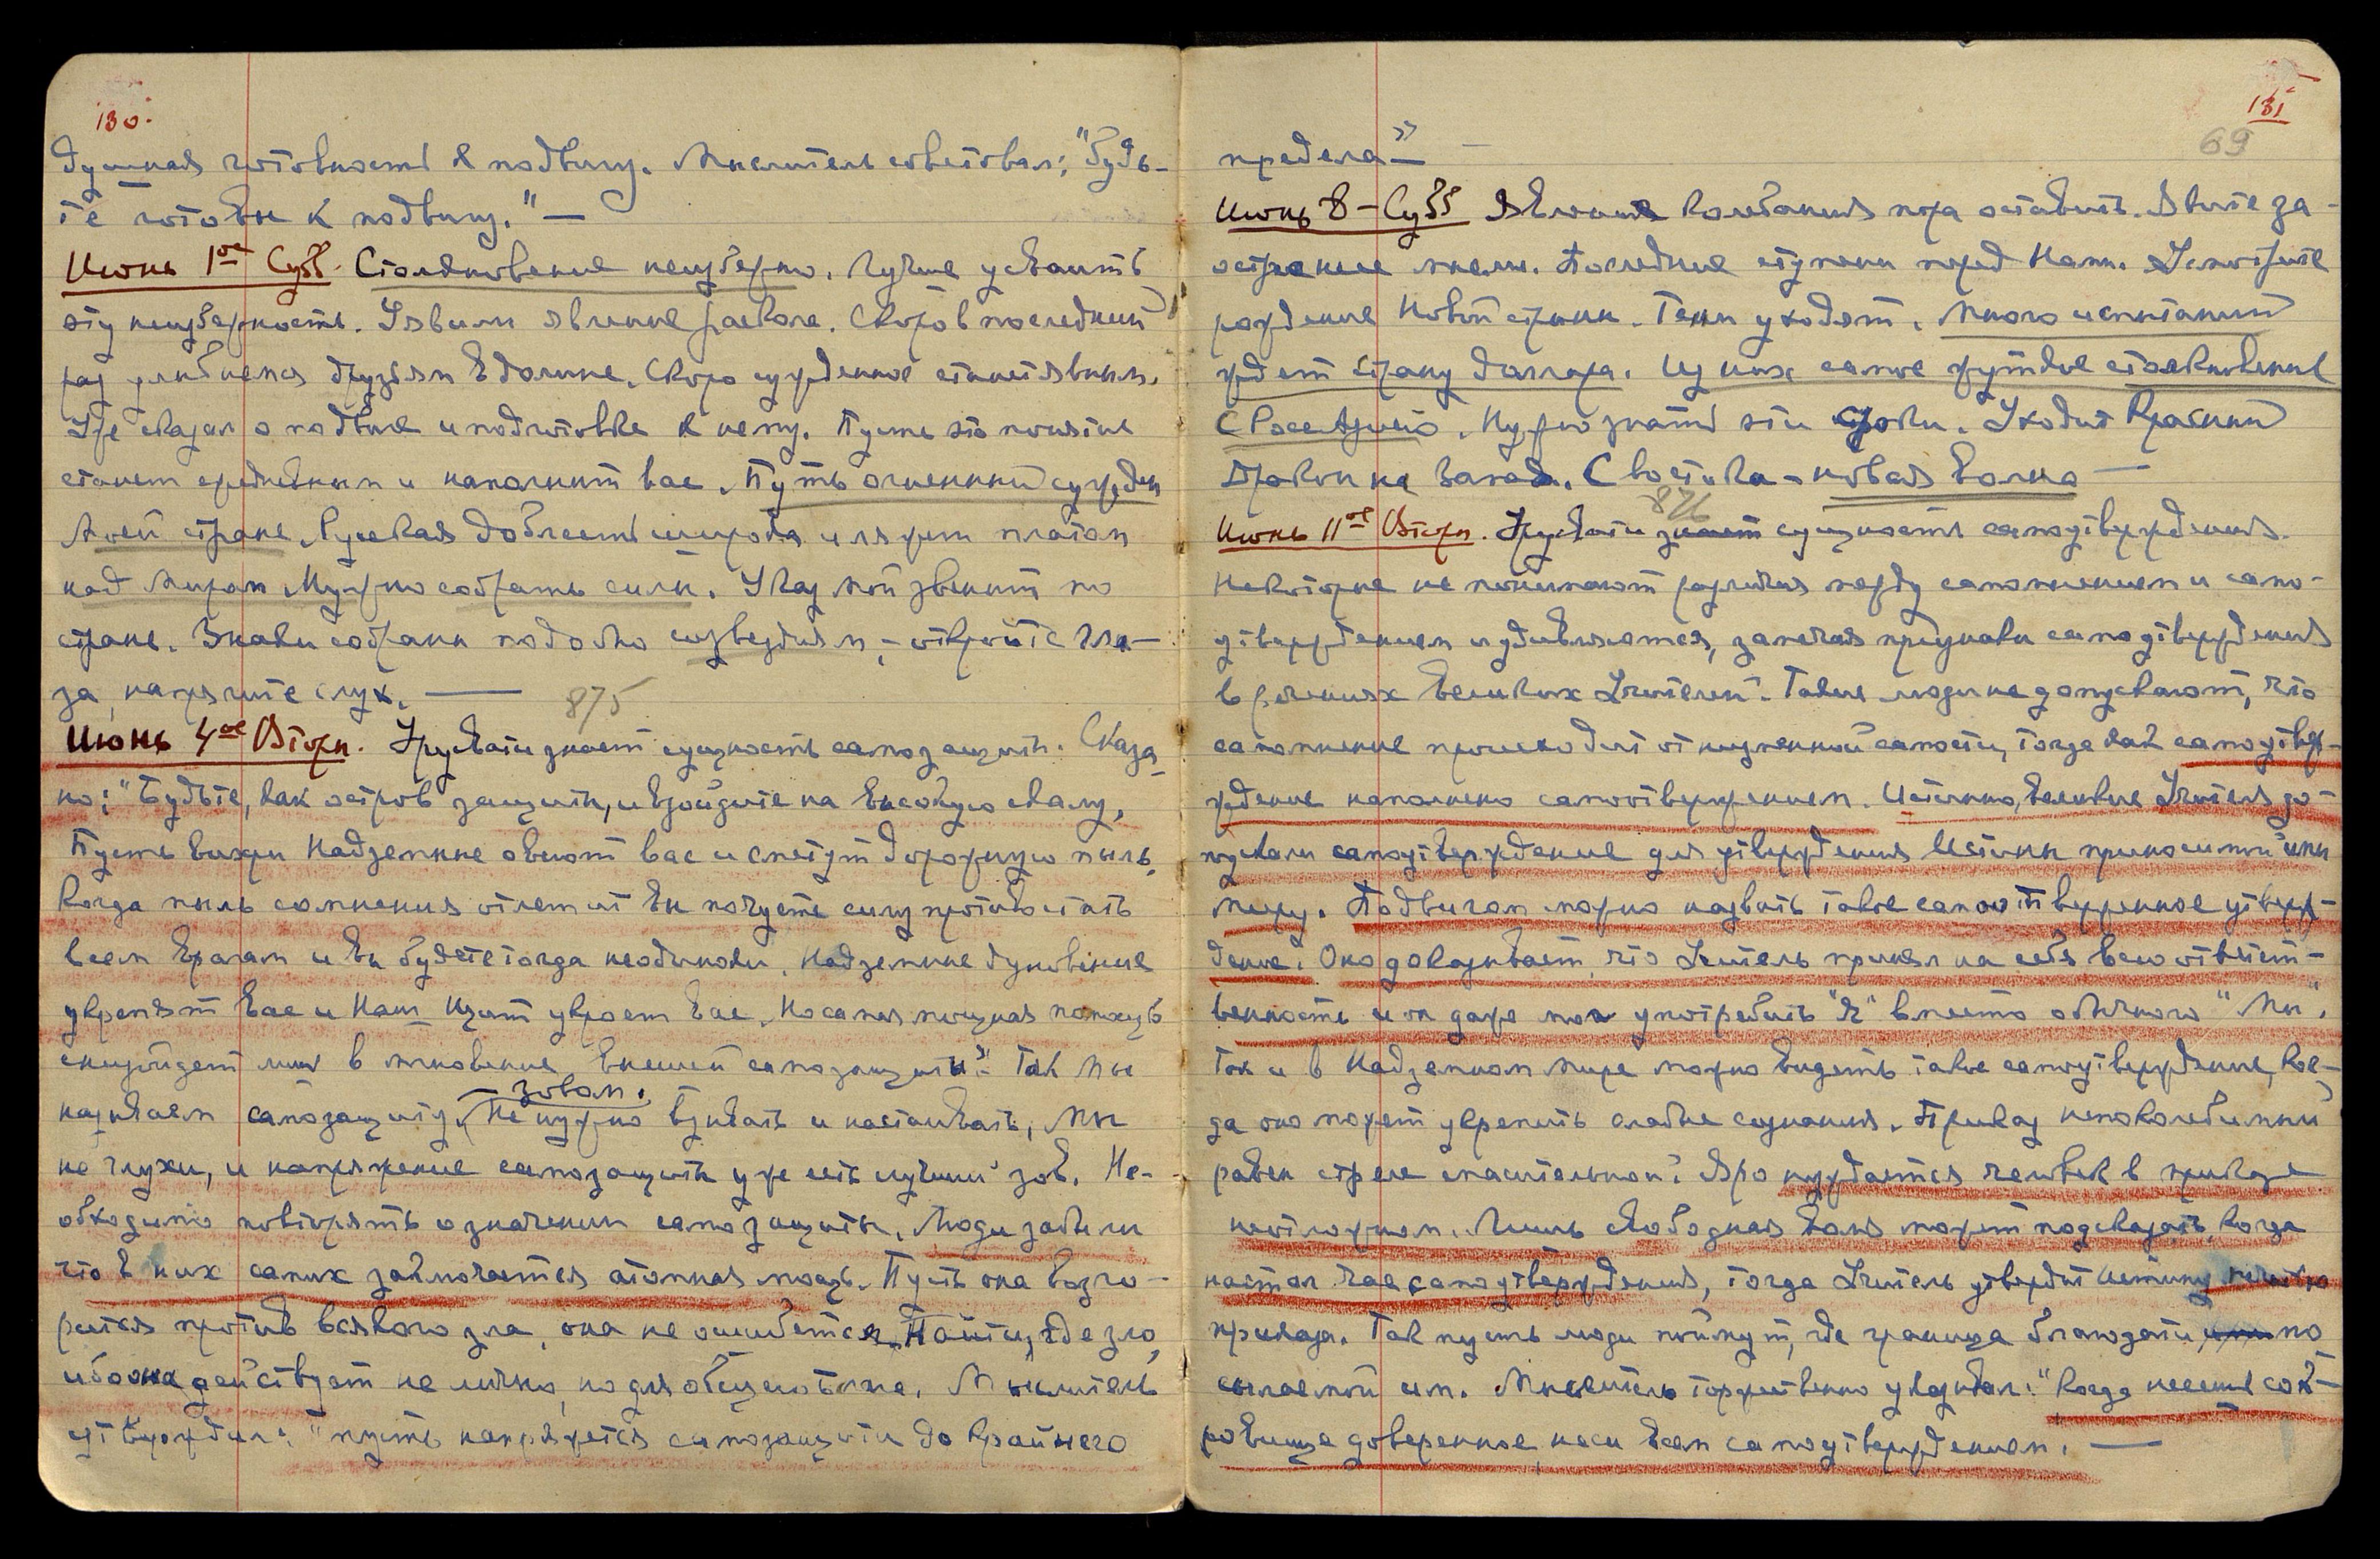 130.
душная готовность к подвигу. Мыслитель советовал: "будь-
те готовы к подвигу." —
Июнь 1ое Субб. Столкновение неизбежно. Лучше усвоить
эту неизбежность. Уявили явление раскола. Скоро в последний
раз улыбнемся друзьям в долине. Скоро сужденное станет явным.
Уже сказал о подвиге и подготовке к нему. Пусть это понятие
станет ежедневным и наполнит вас. Путь огненный сужден
Моей стране. Русская доблесть широка и ляжет платом
над Миром. Нужно собрать силы. Указ мой звенит по
стране. Знаки собраны подобно созвездиям, – откройте гла-
за, напрягите слух. —
875
Июнь 4ое Вторн. Урусвати знает сущность самозащиты. Сказа-
но: "Будьте, как остров защиты, и взойдите на высокую скалу,
Пусть вихри Надземные овеют вас и сметут дорожную пыль,
Когда пыль сомнения отлетит вы почуете силу противостать
всем врагам и вы будете тогда неодиноки. Надземные дуновения
укрепят вас и Наш Щит укроет вас. Но самая мощная помощь
снизойдет лишь в мгновение высшей самозащиты." Так мы
называем самозащиту зовом. Не нужно взывать и настаивать, Мы
не глухи, и напряжение самозащиты уже есть лучший зов. Не-
обходимо повторять о значении самозащиты. Люди забыли
что в них самих заключается атомная мощь. Пусть она возго-
рится против всякого зла, она не ошибется найти, где зло,
ибо она действует не лично, но для общего блага. Мыслитель
утверждал: "пусть напряжется самозащита до крайнего
131
69
предела" —
Июнь 8 – Субб. Явления колебания пора оставить. Явите за-
острение мысли. Последние ступени перед Нами. Усмотрите
рождение Новой страны. Тени уходят. Много испытаний
ждет страну доллара. Из них самое жуткое столкновение
с Росс Азией. Нужно знать эти сроки. Уходит Красный
дракон на Запад. Свостика – новая волна —
876
Июнь 11ое Вторн. Урусвати знает сущность самоутверждения.
Некоторые не понимают различия между самомнением и само-
утверждением и удивляются, замечая признаки самоутверждения
в речениях Великих Учителей. Такие люди не допускают, что
самомнение происходит от низменной самости, тогда как самоутвер-
ждение наполнено самоотвержением. Истинно, Великие Учителя до-
пускали самоутверждение для утверждения Истины приносимой ими
Миру. Подвигом можно назвать такое самоотверженное утвер-
ждение. Оно доказывает, что Учитель принял на себя всю ответст-
венность и он даже мог употребить "Я" вместо обычного "Мы".
Так и в Надземном Мире можно видеть такое самоутверждение, ког-
да оно может укрепить слабые сознания. Приказ непоколебимый
равен стреле спасительной. Яро нуждается человек в приказе
неотложном. Лишь свободная воля может подсказать, когда
настал час самоутверждения, тогда Учитель утвердит Истину
приказа. Так пусть люди поймут, где граница благодати по-
сылаемой им. Мыслитель торжественно указывал: "Когда несешь сок-
ровище доверенное, неси всем самоутверждением. —